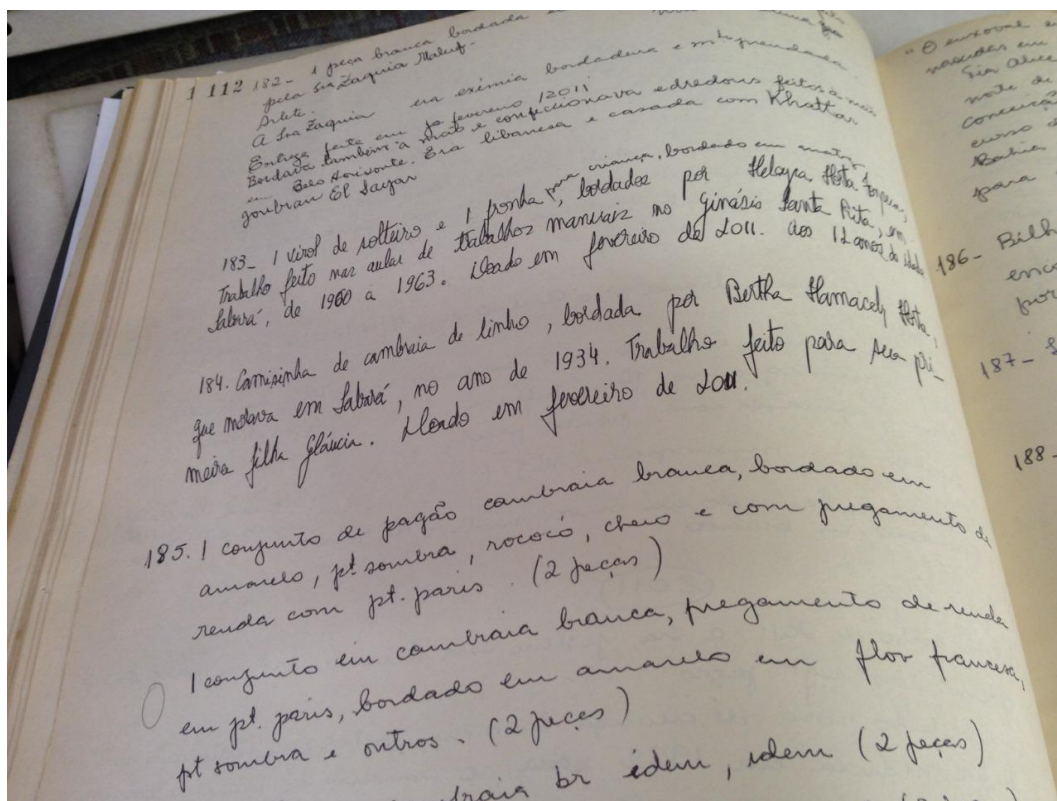 1 112 182- 1 peça branca bordada
pela Sra Zaquia Maluf.
Arlete.
A Sra Zaquia era exímia bordadeira e
Entrega feita em fevereiro /2011
Bordava também a mão e confeccionava edredons feitos a mão
em Belo Horizonte. Era libanesa e casada com Khattar
Joubran El Sayar
183- 1 virol de solteiro e 1 fronha, para criança, bordado em matiz
bordados por
Trabalho feito nas aulas de trabalhos manuais no Ginásio Santa Rita, em
Sabará, de 1960 a 1963. Doado em fevereiro de 2011. aos 12 anos de idade
184. Camisinha de cambraia de linho, bordada por Bertha Hamacek Hota,
que morava em Sabará, no ano de 1934. Trabalho feito para sua pri-
meira filha Gláucia. Doado em fevereiro de 2011.
185. 1 conjunto de pagão cambraia branca, bordado em
amarelo, pt sombra, rococó, cheio e com pregamento de
renda com pt. paris. (2 peças)
1 conjunto em cambraia branca, pregamento de renda
em pt. paris, bordado em amarelo em flor francesa,
pt sombra e outros. (2 peças)
br idem, idem (2 peças)
"O enxoval
nascidas em
Sia Alice
norte de
conceição
curso
Bahia
para
186- Bilh
enco
por
187-
188-